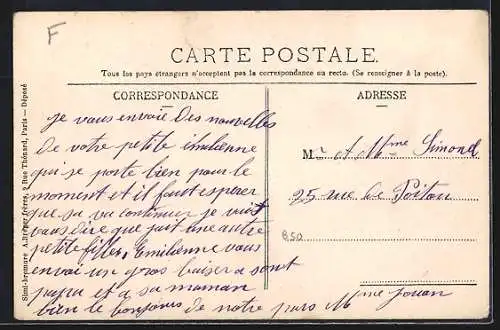 F
CARTE POSTALE.
Tous les pays étrangers n'acceptent pas la correspondance au recto. (Se renseigner à la poste).
CORRESPONDANCE
je vous envoie des nouvelles
de votre petite émilienne
qui se porte bien pour le
moment et il faut esperer
que sa va continuer je vais
vous dire que j'ait une autre
petite filles Emilienne vous
envoi un gros baiser a sont
papa et a sa maman
bien le bonjours de notre pars Mme Jouan
ADRESSE
M. et Mme Simond
25 rue de Poitou
8.50
Simi-bromure A.Breger frères, 9 Rue Thénard, Paris — Déposé